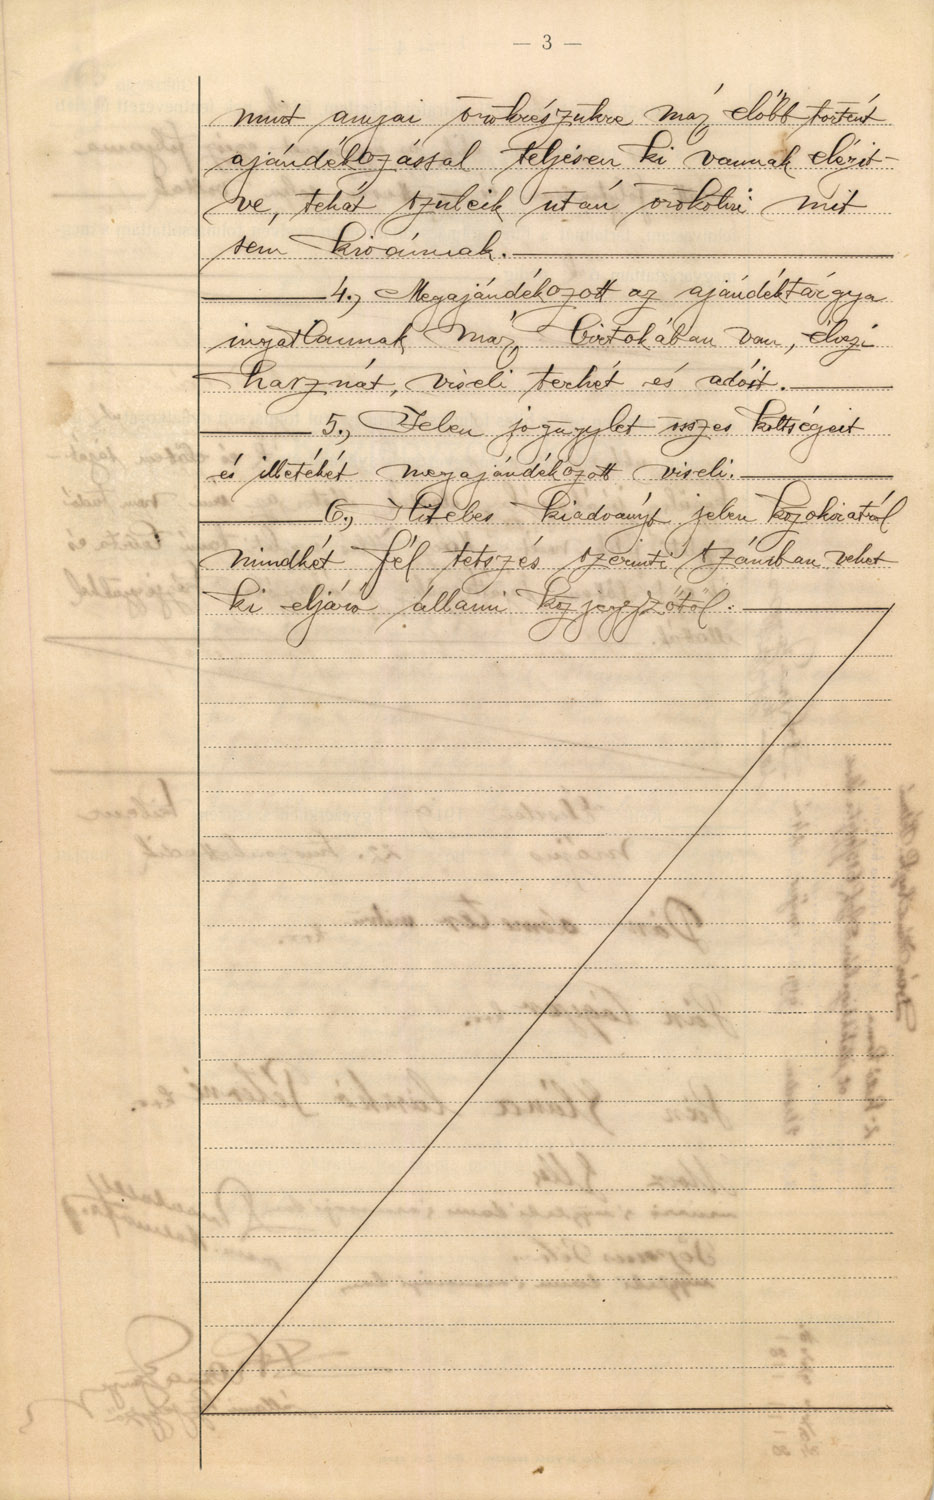 — 3 —
mint anyai örökrészükre már előbb történt
ajándékozással teljesen ki vannak elégit-
ve, tehát szüleik után örökölni mit
sem kivánnak.
4., Megajándékozott az ajándék tárgya
ingatlannak már birtokában van, élvezi
hasznát, viseli terhét és adóit.
5., Jelen jogügylet összes költségeit
és illetékét megajándékozott viseli.
6., Hiteles kiadványt jelen közokiratról
mindkét fél tetszés szerinti számban vehet
ki eljáró állami közjegyzőtől.